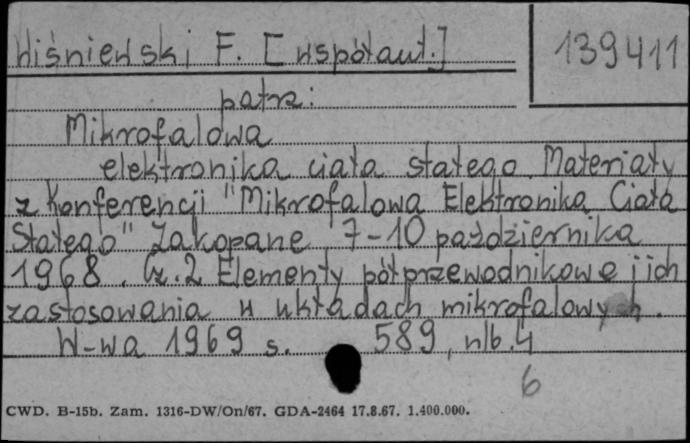 Wiśniewski F. [współaut.]
139411
patrz:
Mikrofalowa
elektronika ciała stałego. Materiały
z Konferencji "Mikrofalowa Elektronika Ciała
Stałego" Zakopane 7-10 października
1968. Cz.2 Elementy półprzewodnikowe i ich
zastosowania w układach mikrofalowych.
W-wa 1969 s. 589, nlb.4
6
CWD. B-15b. Zam. 1316-DW/On/67. GDA-2464 17.8.67. 1.400.000.